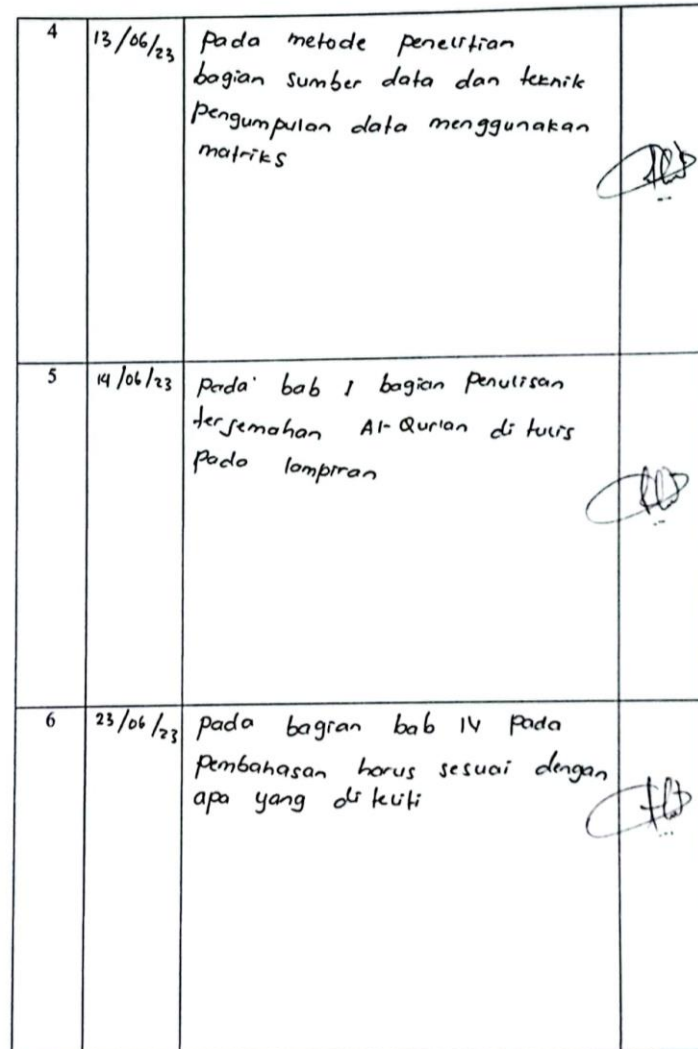 4 13/06/23 pada metode penelitian
bagian sumber data dan teknik
pengumpulan data menggunakan
matriks
5 14/06/23 pada bab I bagian penulisan
terjemahan Al-Qur'an di tulis
pada lampiran
6 23/06/23 pada bagian bab IV pada
pembahasan harus sesuai dengan
apa yang di teliti